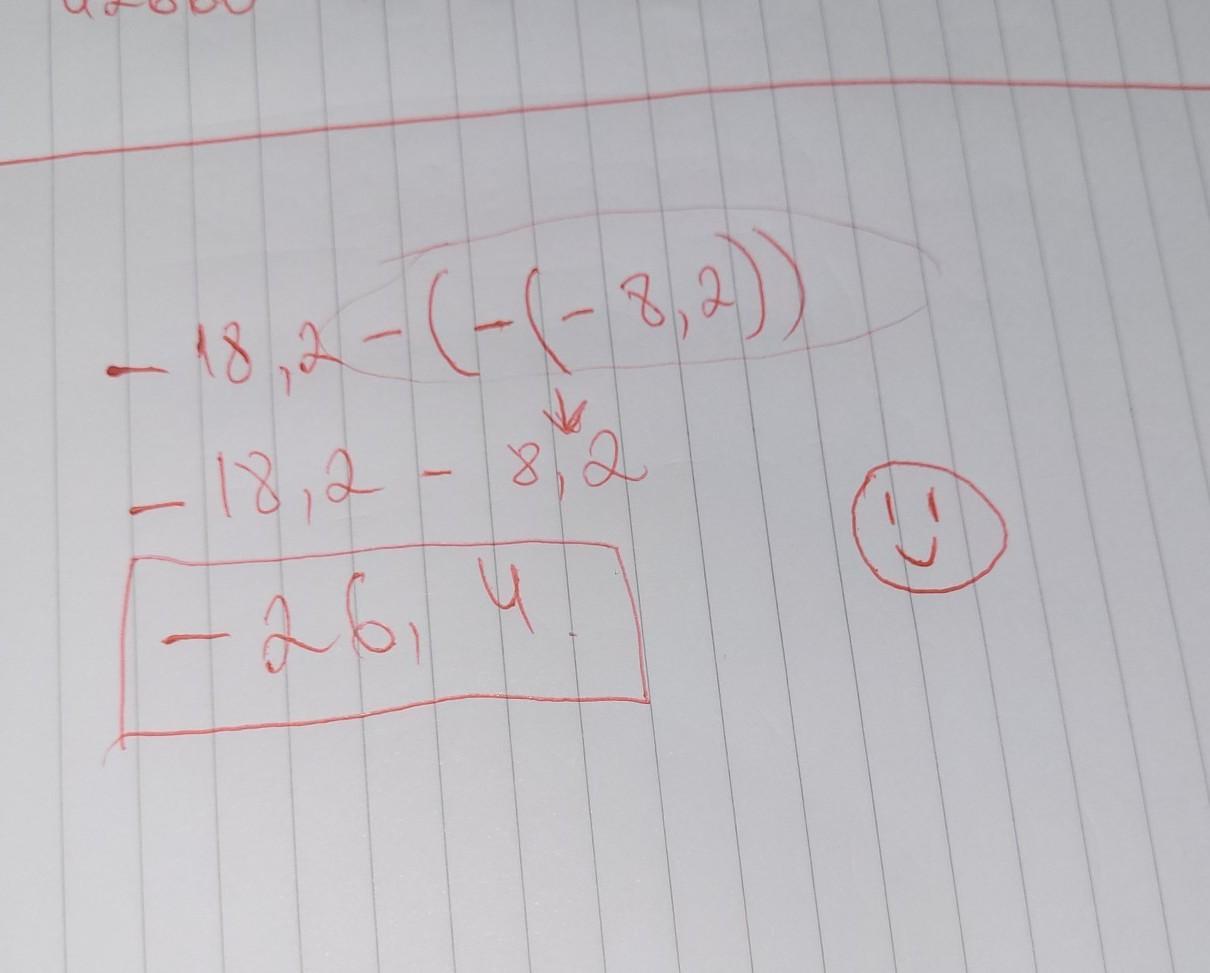 - 18,2 - (- (- 8,2))
- 18,2 - 8,2
- 26, 4